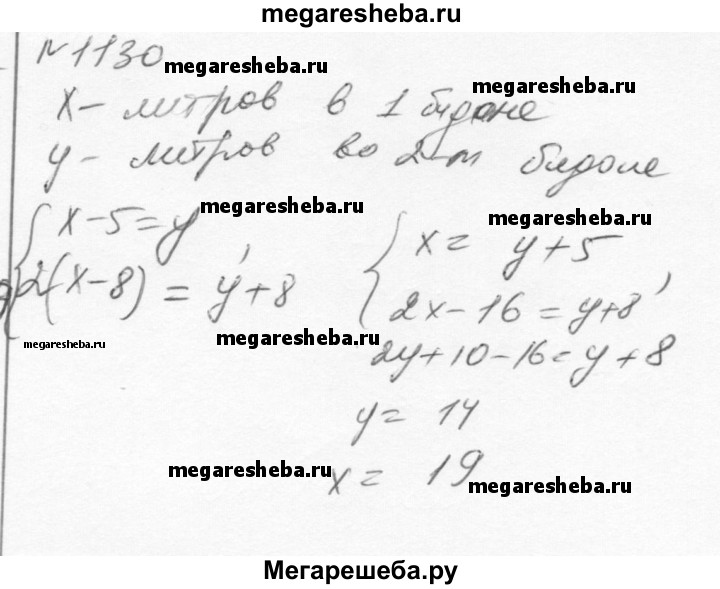 megaresheba.ru
№1130
megaresheba.ru
megaresheba.ru
x - литров в 1 бидоне
y - литров во 2-м бидоне
megaresheba.ru
megaresheba.ru
{ x - 5 = y,
2(x - 8) = y + 8
{ x = y + 5
2x - 16 = y + 8,
megaresheba.ru
megaresheba.ru
2y + 10 - 16 = y + 8
y = 14
x = 19
megaresheba.ru
megaresheba.ru
Мегарешеба.ру